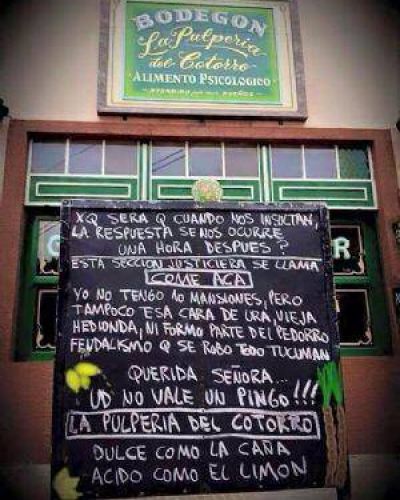 BODEGON
La Pulperia
del Cotorro
ALIMENTO PSICOLOGICO
XQ SERA Q CUANDO NOS INSULTAN,
LA RESPUESTA SE NOS OCURRE
UNA HORA DESPUES?
ESTA SECCION JUSTICIERA SE LLAMA
COME ACA
YO NO TENGO 10 MANSIONES, PERO
TAMPOCO ESA CARA DE URA, VIEJA
HEDIONDA, NI FORMO PARTE DEL PEDORRO
FEUDALISMO Q SE ROBO TODO TUCUMAN
QUERIDA SEÑORA...
UD NO VALE UN PINGO!!!
LA PULPERIA DEL COTORRO
DULCE COMO LA CAÑA
ACIDO COMO EL LIMON